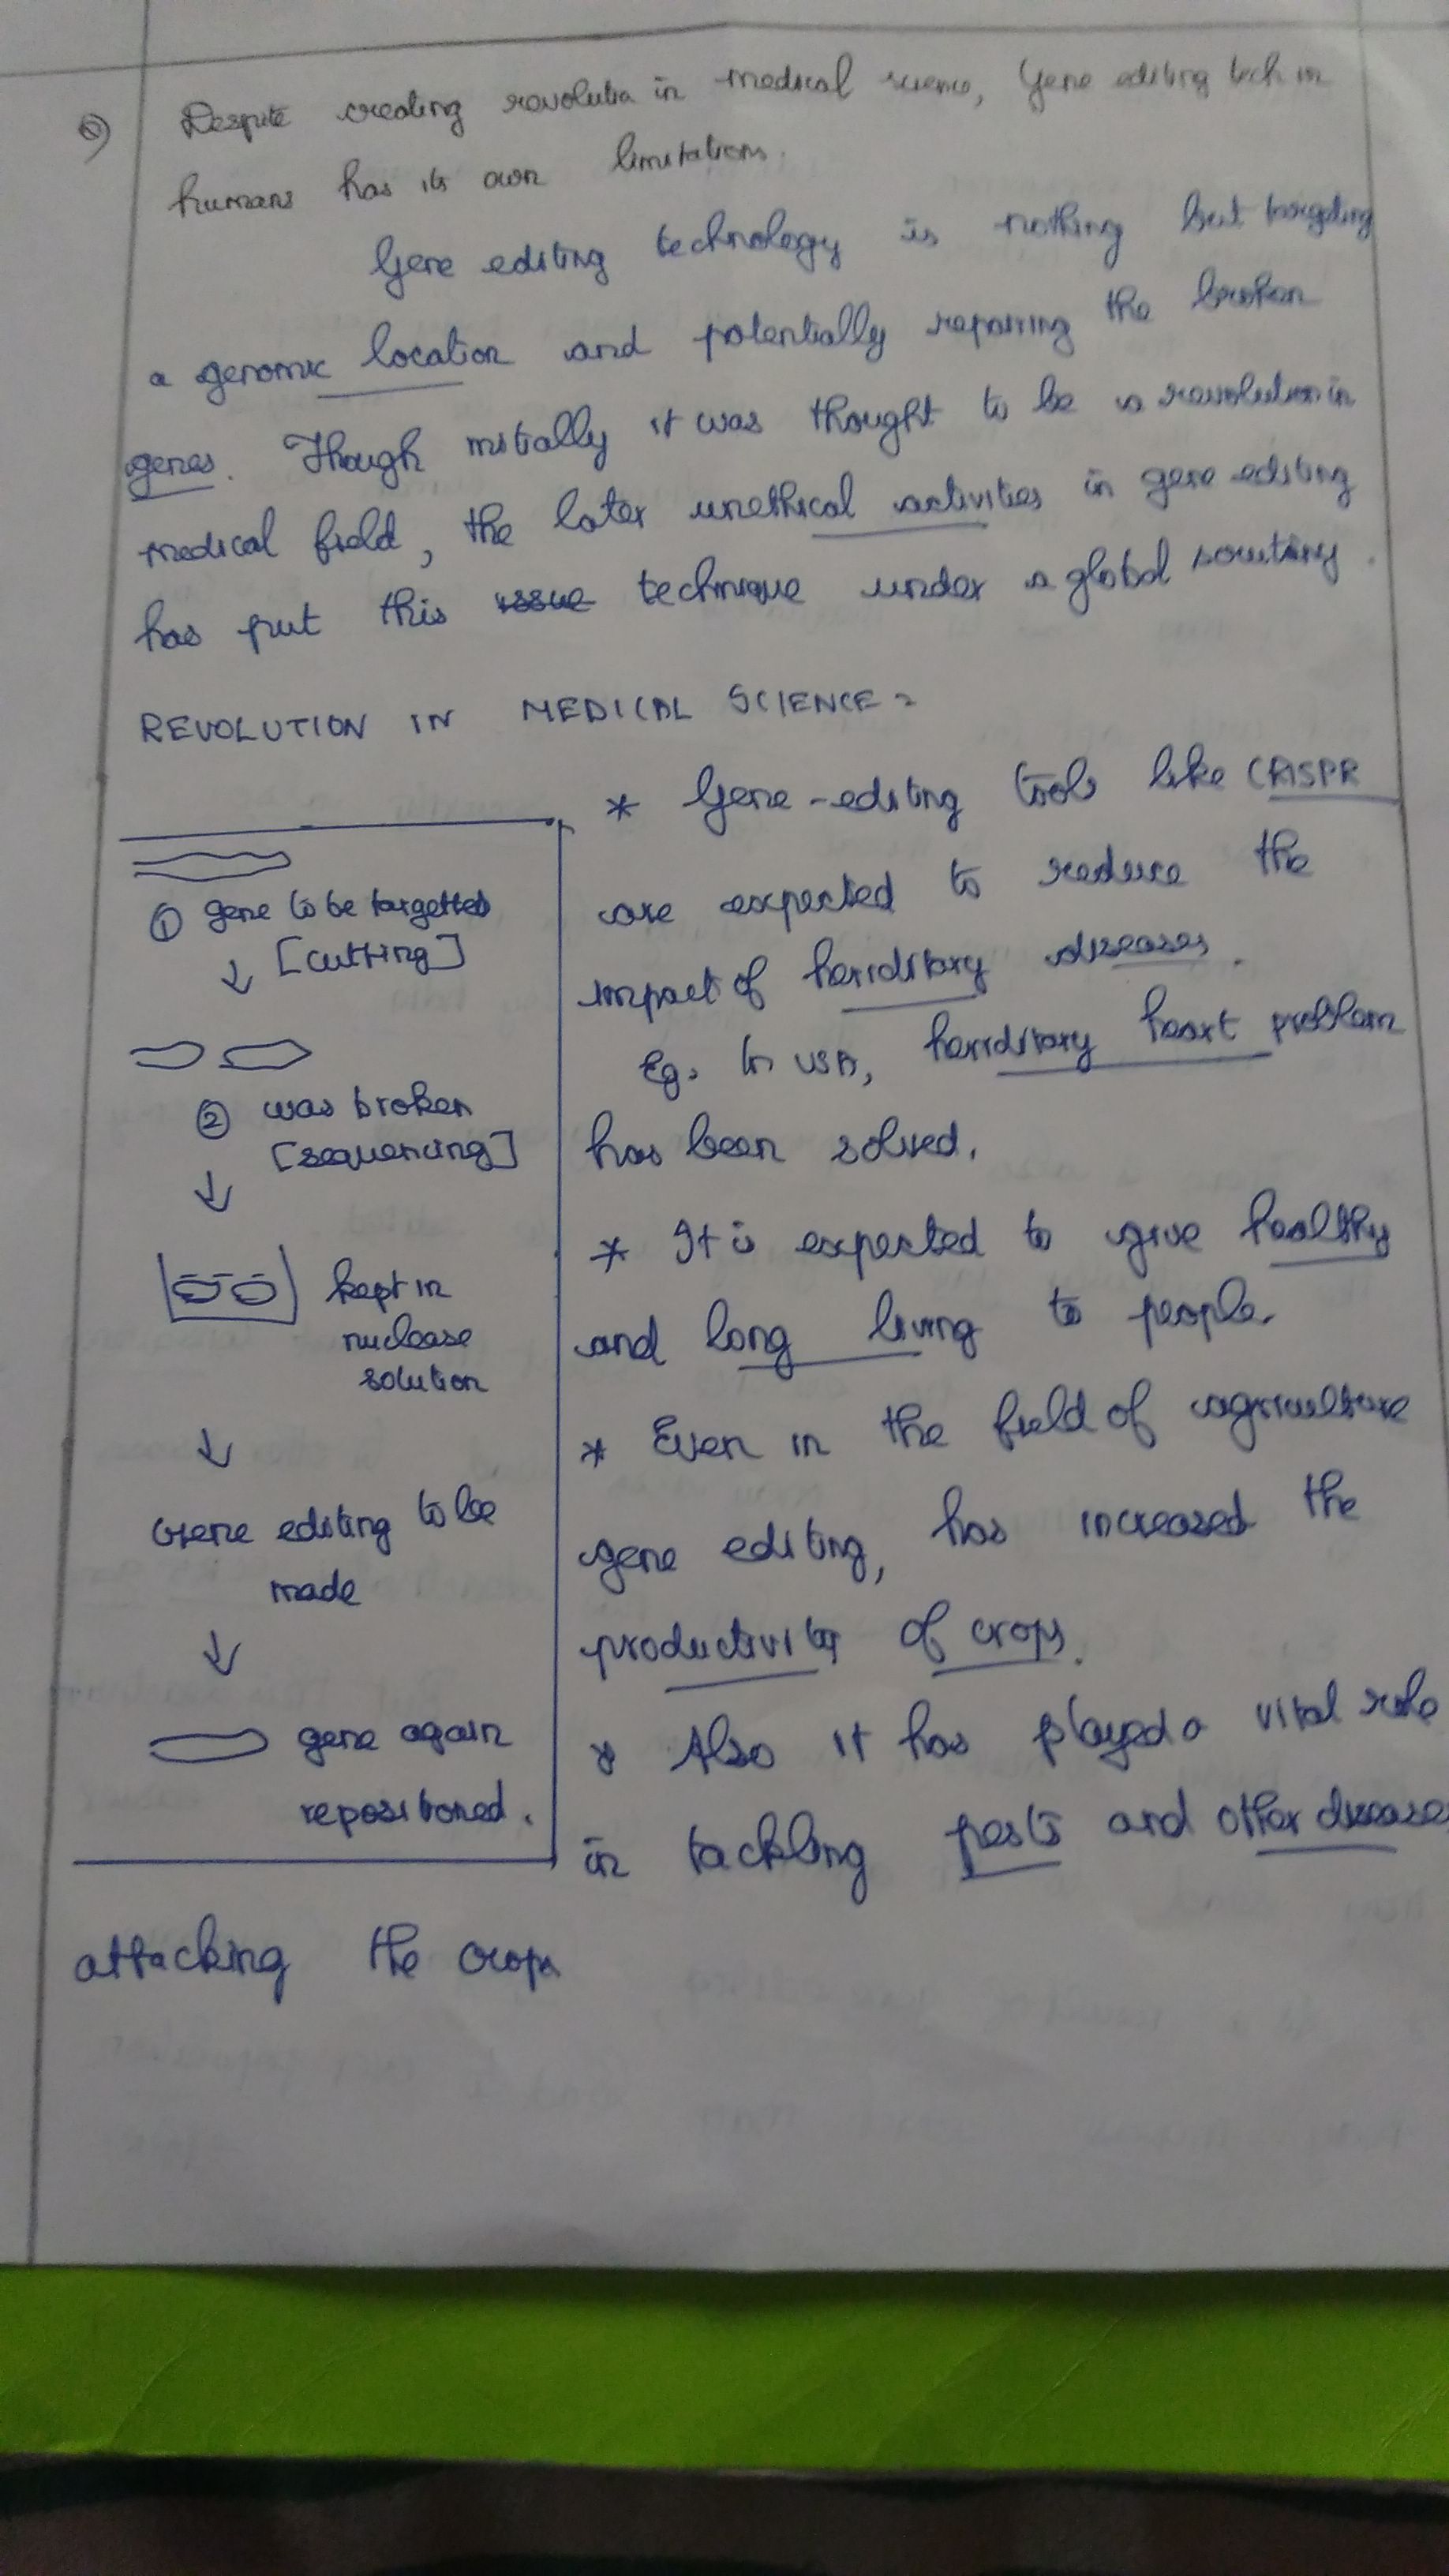 6) Despite creating revolutia in medical science, Gene editing tech in
humans has its own limitations.
Gene editing technology is nothing but targeting
a genomic location and potentially repairing the broken
genes. Though initially it was thought to be a revolution in
medical field, the later unethical activities in gene editing
has put this issue technique under a global scrutiny.
REVOLUTION IN MEDICAL SCIENCE:
① gene to be targetted
[cutting]
↓
② was broken
[sequencing]
↓
kept in
nuclease
solution
↓
Gene editing to be
made
↓
gene again
repositioned.
* Gene-editing tools like CRISPR
are expected to reduce the
impact of heriditary diseases.
Eg. In USA, heriditary heart problem
has been solved.
* It is expected to give healthy
and long living to people.
* Even in the field of agriculture
gene editing, has increased the
productivity of crops.
* Also it has played a vital role
in tackling pests and other diseases
attacking the crops